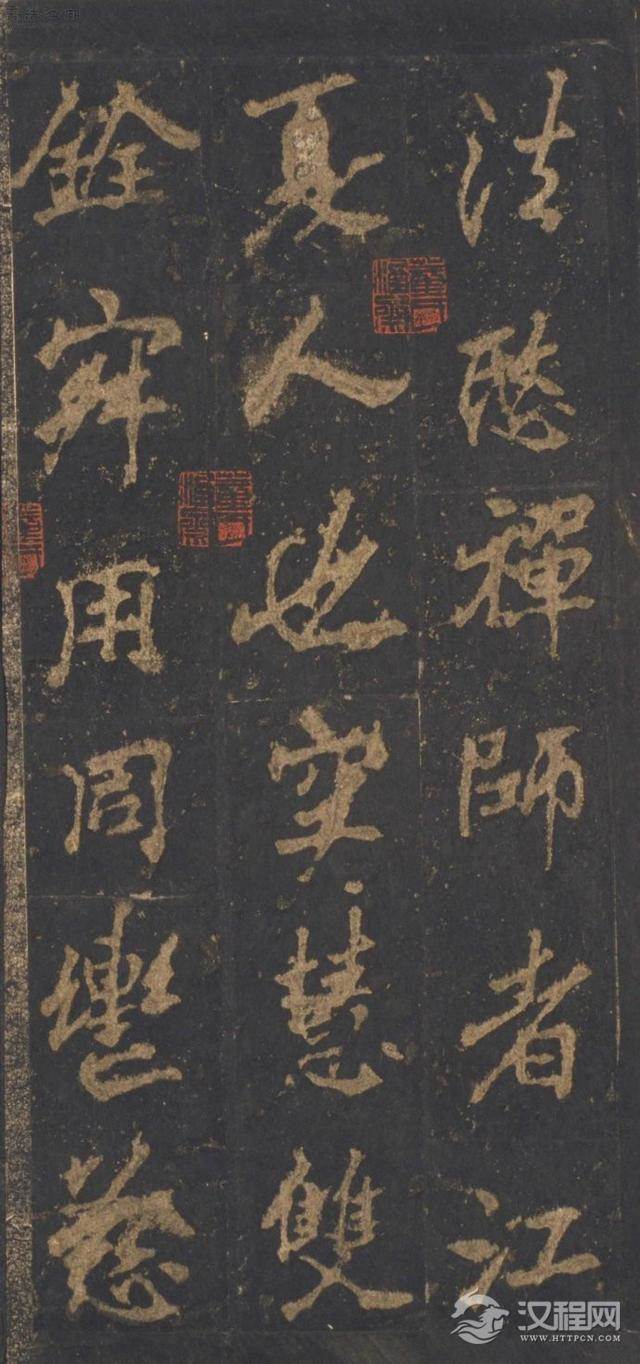 法愍禪師者江
夏人也实慧雙
銓寂用同轡慈
汉程网
WWW.HTTPCN.COM